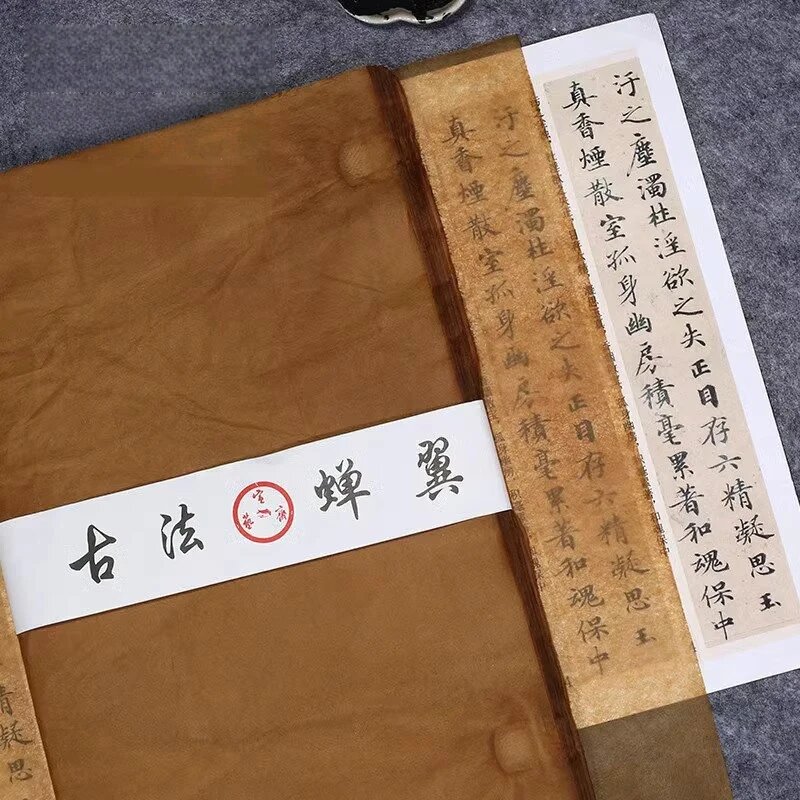 汙之塵濁杜淫欲之失正目存六精凝思玉
真香煙散室孤身幽房積毫累著和魂保中
汙之塵濁杜淫欲之失正目存六精凝思玉
真香煙散室孤身幽房積毫累著和魂保中
古法蝉翼
精凝思